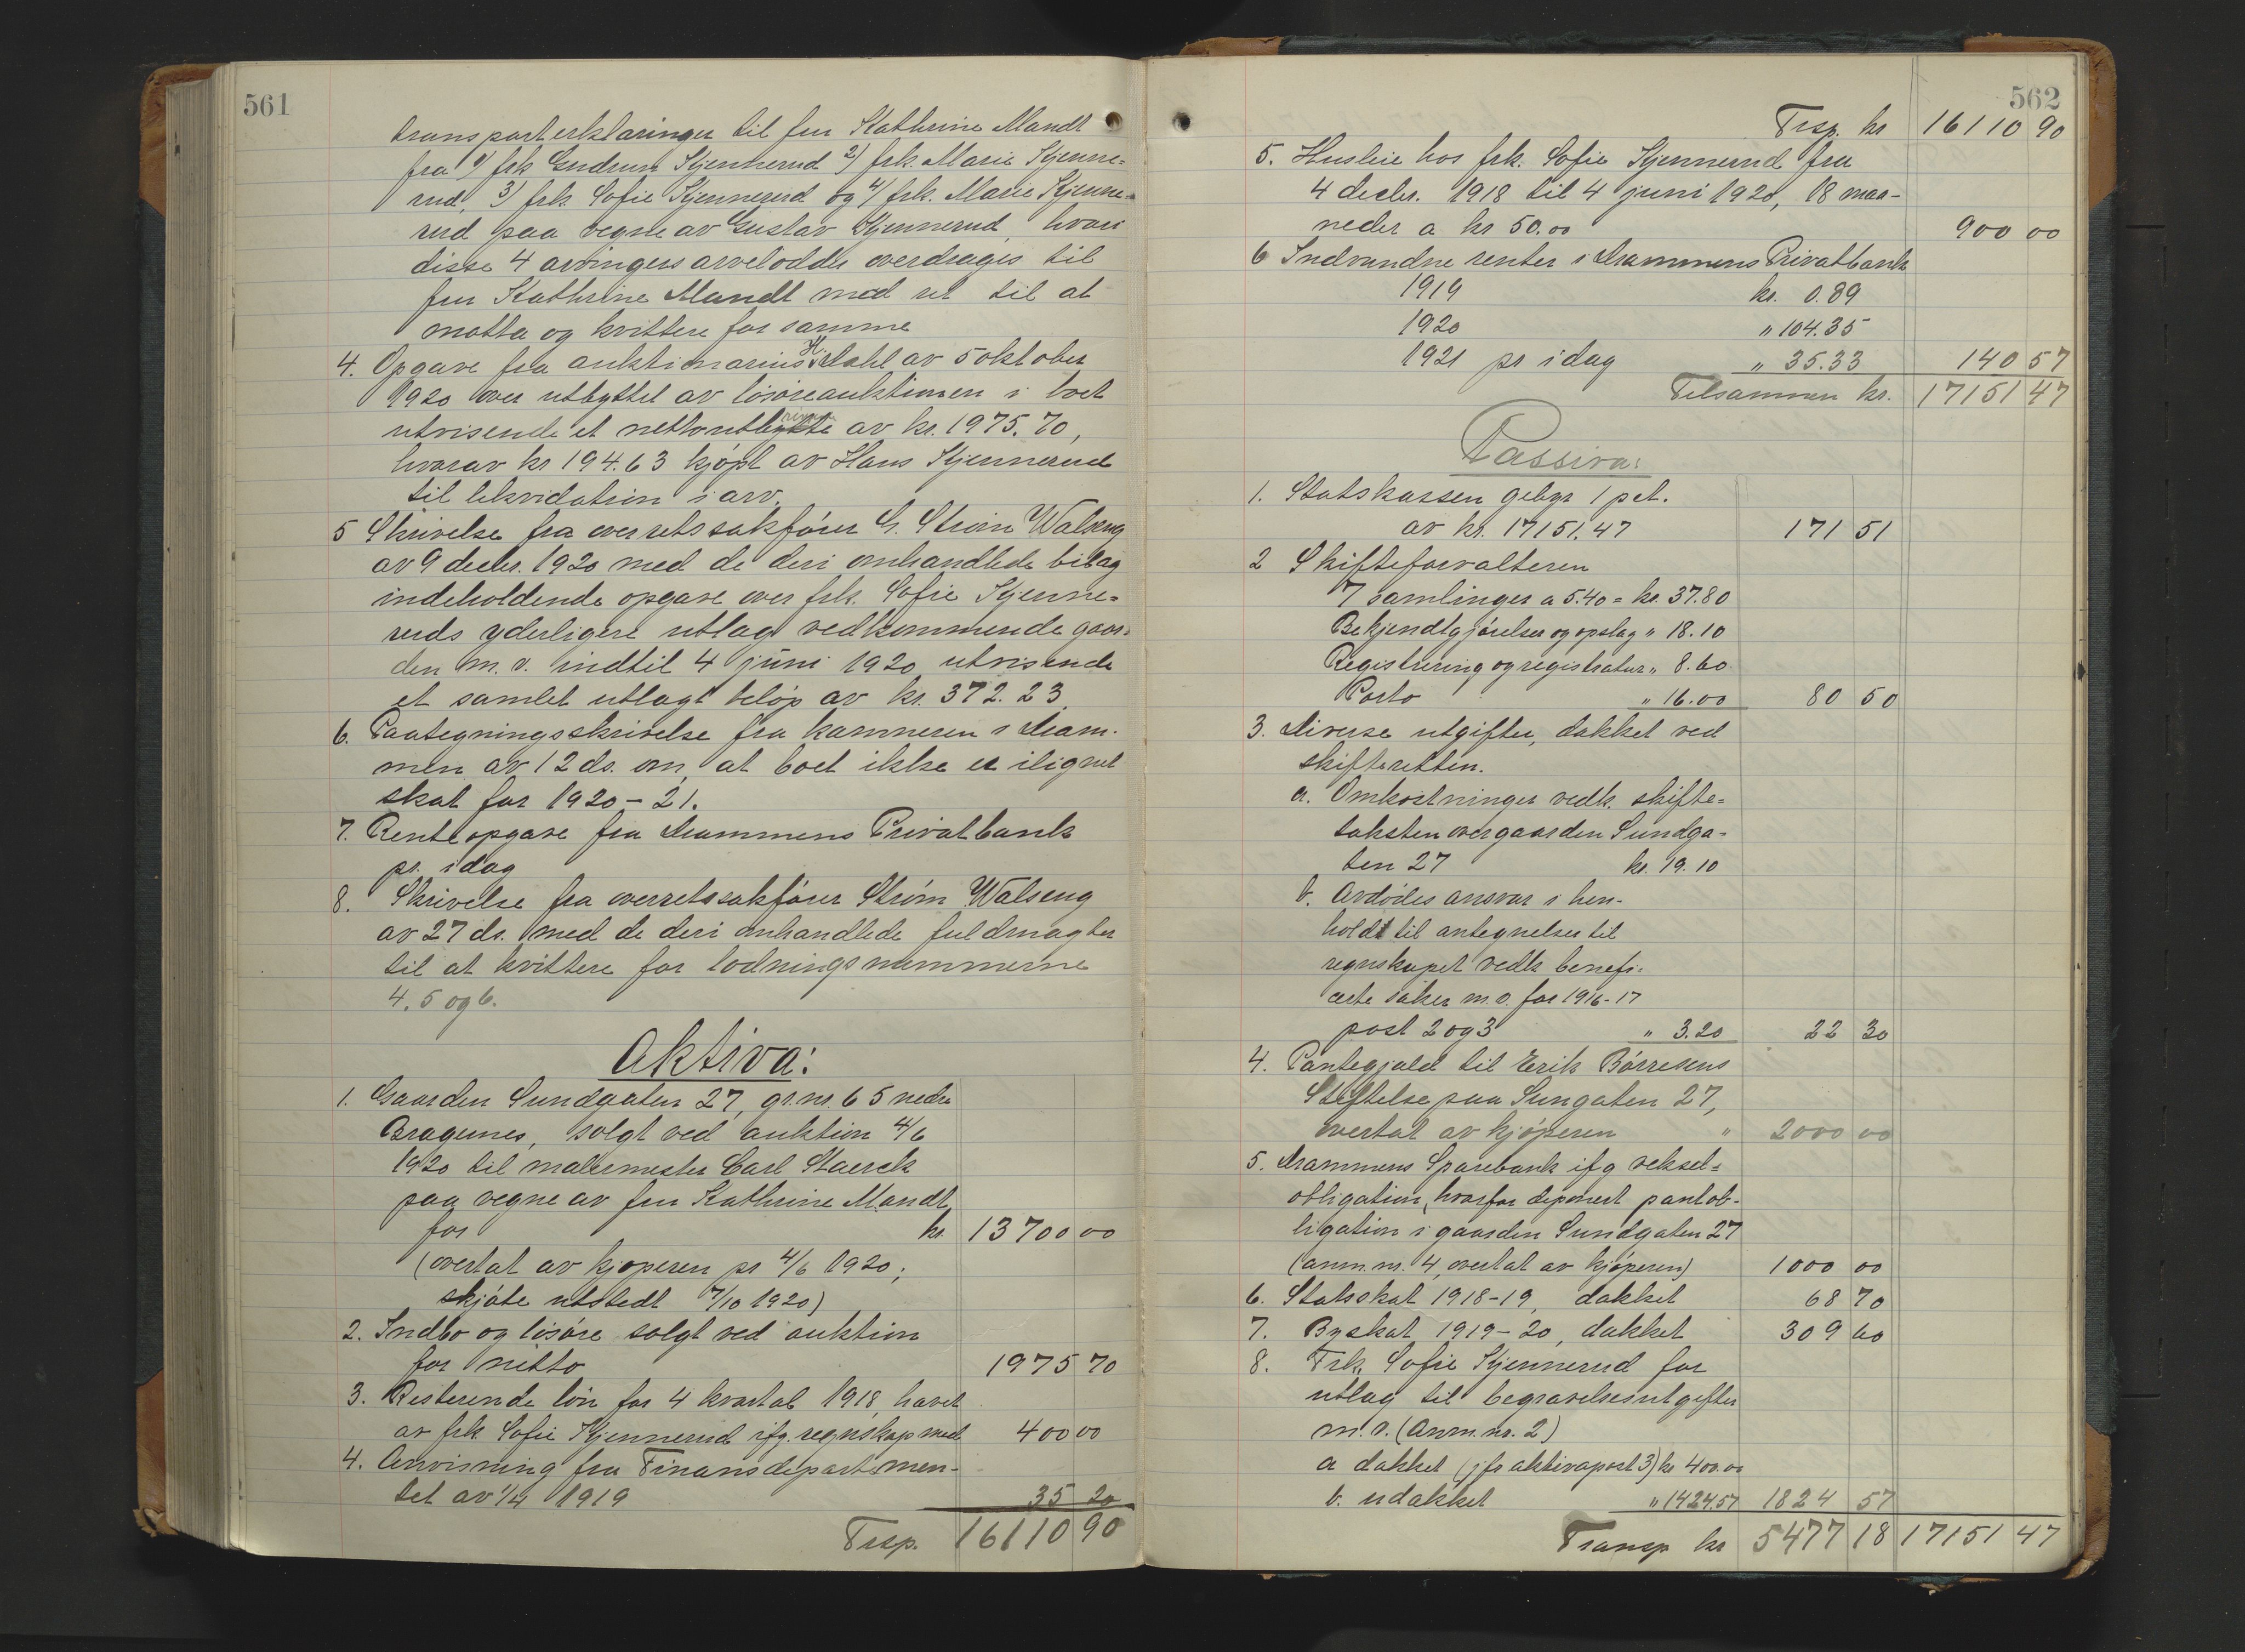 561
transporterklæringer til fru Kathrine Mandt
fra 1) frk Gudrun Kjennerud 2) frk. Marie Kjenne=
rud, 3) frk. Sofie Kjennerud og 4) frk. Marie Kjenne=
rud paa vegne av Gustav Kjennerud, hvori
disse 4 arvingers arvelodder overdrages til
fru Kathrine Mandt med ret til at
motta og kvittere for samme
4. Opgave fra auktionarius H. Dahl av 5 oktober
1920 over utbyttet av løsøreauktionen i boet
utvisende et nettoutbytte av kr. 1975.70,
hvorav kr 194.63 kjøpt av Hans Kjennerud
til likvidation i arv.
5 Skrivelse fra overretssakfører G. Strøm Walseng
av 9 decbr. 1920 med de deri omhandlede bilag
indeholdende opgave over frk. Sofie Kjenne=
ruds yderligere utlag vedkommende gaar=
den m.v. indtil 4 juni 1920 utvisende
et samlet utlagt beløp av kr. 372.23.
6. Paategningsskrivelse fra kæmneren i Dram-
men av 12 ds. om, at boet ikke er ilignet
skat for 1920-21.
7. Renteopgave fra Drammens Privatbank
pr. idag
8. Skrivelse fra overretssakfører Strøm Walseng
av 27 ds. med de deri omhandlede fuldmagter
til at kvittere for lodningsnummerne
4, 5 og 6.
Aktiva:
1. Gaarden Sundgaten 27, gr.nr. 65 nedre
Bragernes, solgt ved auktion 4/6
1920 til malermester Carl Staerck
paa vegne av fru Kathrine Mandt,
for kr. 13700 00
(overtat av kjøperen pr 4/6 1920;
skjøte utstedt 7/10 1920)
2. Indbo og løsøre solgt ved auktion
for netto 1975 70
3. Resterende løn for 4 kvartal 1918, hævet
av frk. Sofie Kjennerud ifg. regnskap med 400 00
4. Anvisning fra Finansdepartemen-
tet av 1/4 1919 35 20
Trsp. 16110 90
562
Trsp. kr 16110 90
5. Husleie hos frk. Sofie Kjennerud fra
4 decbr. 1918 til 4 juni 1920, 18 maa-
neder a kr 50.00 900 00
6 Indvundne renter i Drammens Privatbank
1919 kr. 0.89
1920 " 104.35
1921 pr idag " 35.33 140 57
Tilsammen kr. 17151 47
Passiva:
1. Statskassen gebyr 1 pct.
av kr. 17151.47 171 51
2 Skifteforvalteren
7 samlinger a 5.40 = kr. 37.80
Bekjendtgjørelser og opslag " 18.10
Registrering og registratur " 8.60
Porto " 16.00 80 50
3. Diverse utgifter, dækket ved
skifteretten.
a. Omkostninger vedk. skifte=
taksten over gaarden Sundga=
ten 27 kr. 19.10
b. Avdødes ansvar i hen-
hold til antegnelser til
regnskapet vedk. benefi=
certe saker m.v. for 1916-17
post 2 og 3 " 3.20 22 30
4. Pantegjæld til Erik Børresens
Stiftelse paa Sungaten 27,
overtat av kjøperen " 2000 00
5. Drammens Sparebank ifg veksel=
obligation, hvorfor deponert pantob-
ligation i gaarden Sundgaten 27
(anm.nr. 4, overtat av kjøperen) 1000 00
6. Statsskat 1918-19, dækket 68 70
7. Byskat 1919-20, dækket 309 60
8. Frk. Sofie Kjennerud for
utlag til begravelsesutgifter
m.v. (Anm.nr. 2)
a dækket (jfr aktivapost 3) kr 400.00
b. udækket " 1424.57 1824 57
Transp kr 5477 18 17151 47